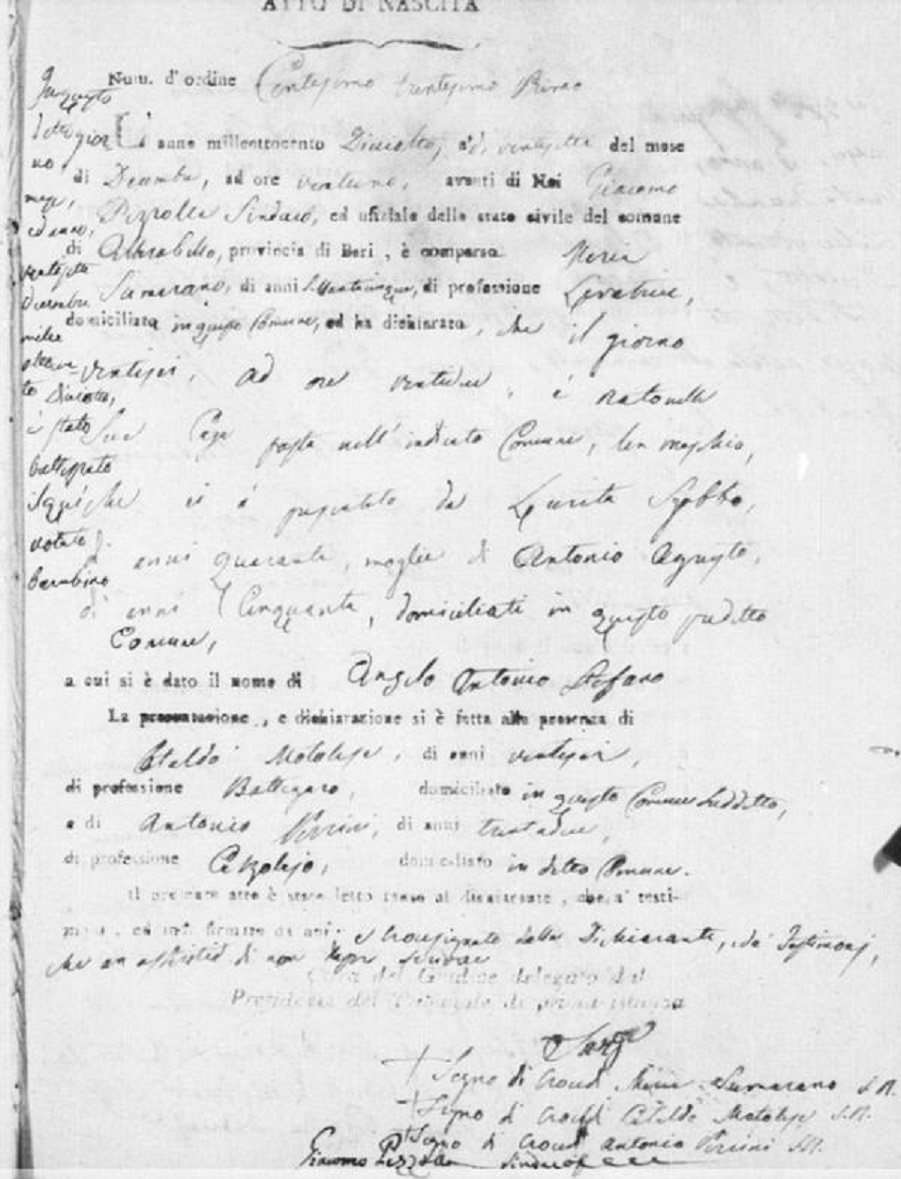 ATTO DI NASCITA
Num. d'ordine Centesimo trentesimo Primo
L' anno milleottrocento Diciotto, a' dì ventisette del mese
di Decembre, ad ore ventuno, avanti di Noi Giacomo
Sindaco, ed ufiziale dello stato civile del comune
di Alberobello, provincia di Bari, è comparsa Maria
Sumerano, di anni, di professione Levatrice,
domiciliata in questo Comune, ed ha dichiarato, che il giorno
ventisei, ad ore ventidue, è nato nella
Sua Casa posta nell'indicato Comune, un maschio,
che si è partorito da
di anni quaranta, moglie di Antonio
di anni Cinquanta, domiciliati in questo predetto
Comune,
a cui si è dato il nome di Angelo Antonio Stefano
La presentazione, e dichiarazione si è fatta alla presenza di
Cataldo, di anni ventisei,
di professione domiciliato in questo Comune suddetto,
e di Antonio, di anni trentadue,
di professione domiciliato in detto Comune.
Il presente atto è stato letto tanto al dichiarante, che a' testi-
monj, ed indi firmato da noi e Crocesignato dalla Dichiarante, da' Testimonj,
che an asserito di non saper scrivere
Cifra del Giudice delegato dal
Presidente del Tribunale di prima istanza
Segno di Croce di Maria Sumerano
Segno di Croce di Cataldo
Segno di Croce di Antonio
Giacomo Sindaco
In questo
detto gior
no,
mese,
ed anno,
ventisette
Dicembre
mille
ottocen=
to Diciotto,
è stato
battezzato
il
notato
bambino